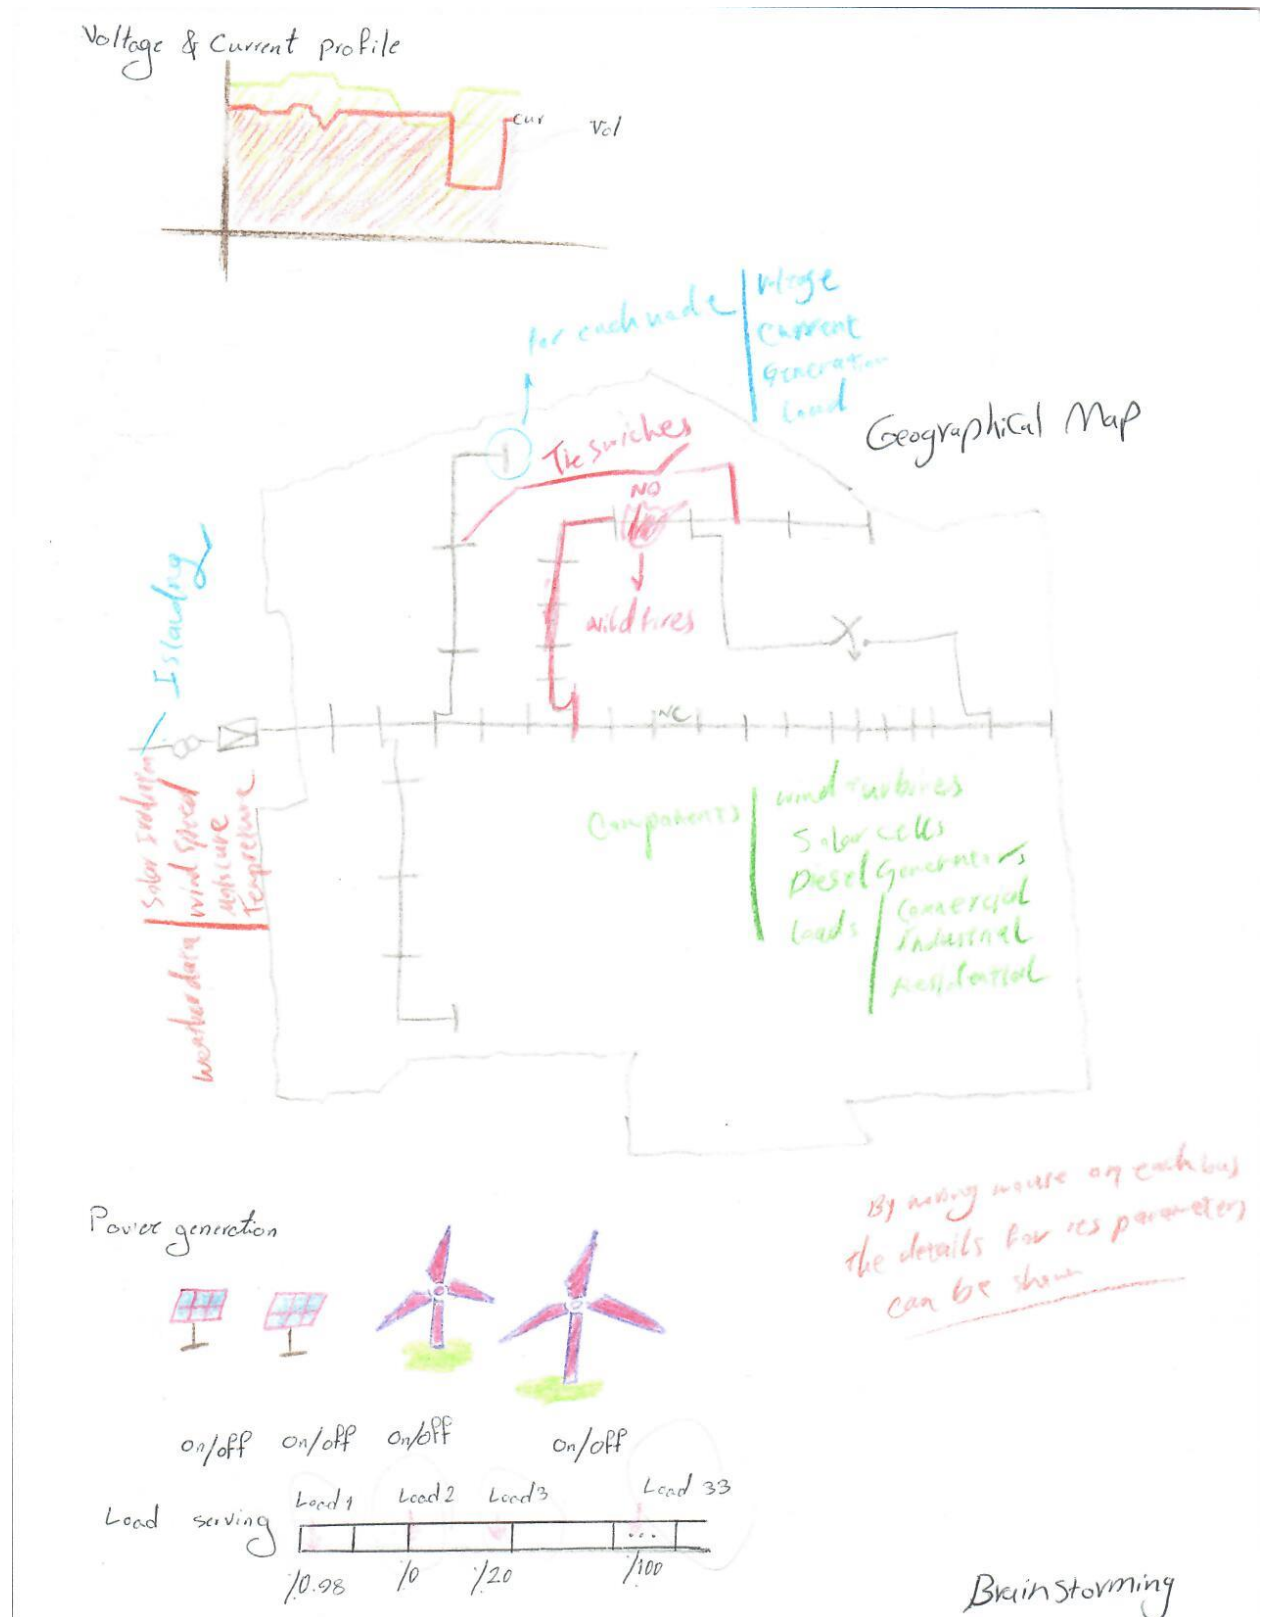 Voltage & Current profile
cur
Vol
for each node
Voltage
Current
Generation
Load
Geographical Map
Tie swiches
NO
wildfires
Islanding
NC
Solar Iradiation
wind speed
Moiscure
Tempreture
weather data
Components
wind turbines
Solar cells
Diesel Generators
Loads
Commercial
industrial
Residential
By moving mouse on each bus
the details for its parameters
can be shown
Power generation
on/off
on/off
on/off
on/off
Load serving
Load 1
Load 2
Load 3
Load 33
...
%0.98
%0
%20
%100
Brainstorming